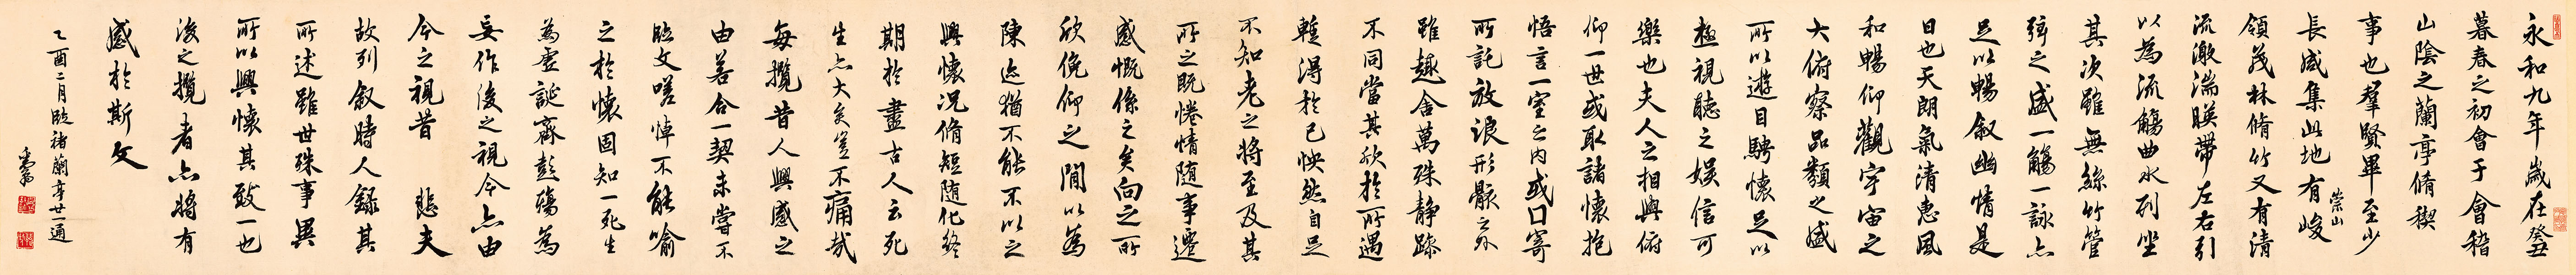 永和九年歲在癸丑
暮春之初會于會稽
山陰之蘭亭脩稧
事也羣賢畢至少
長咸集此地有崇山峻
領茂林脩竹又有清
流激湍暎帶左右引
以為流觴曲水列坐
其次雖無絲竹管
弦之盛一觴一詠亦
足以暢叙幽情是
日也天朗氣清惠風
和暢仰觀宇宙之
大俯察品類之盛
所以遊目騁懷足以
極視聽之娛信可
樂也夫人之相與俯
仰一世或取諸懷抱
悟言一室之內或口寄
所託放浪形骸之外
雖趣舍萬殊静躁
不同當其欣於所遇
蹔得於己怏然自足
不知老之將至及其
所之既惓情随事遷
感慨係之矣向之所
欣俛仰之閒以為
陳迹猶不能不以之
興懷況脩短随化終
期於盡古人云死
生亦大矣豈不痛哉
每攬昔人興感之
由若合一契未嘗不
臨文嗟悼不能喻
之於懷固知一死生
為虛誕齊彭殤為
妄作後之視今亦由
今之視昔 悲夫
故列叙時人録其
所述雖世殊事異
所以興懷其致一也
後之攬者亦將有
感於斯文
乙酉二月臨褚蘭亭廿一通